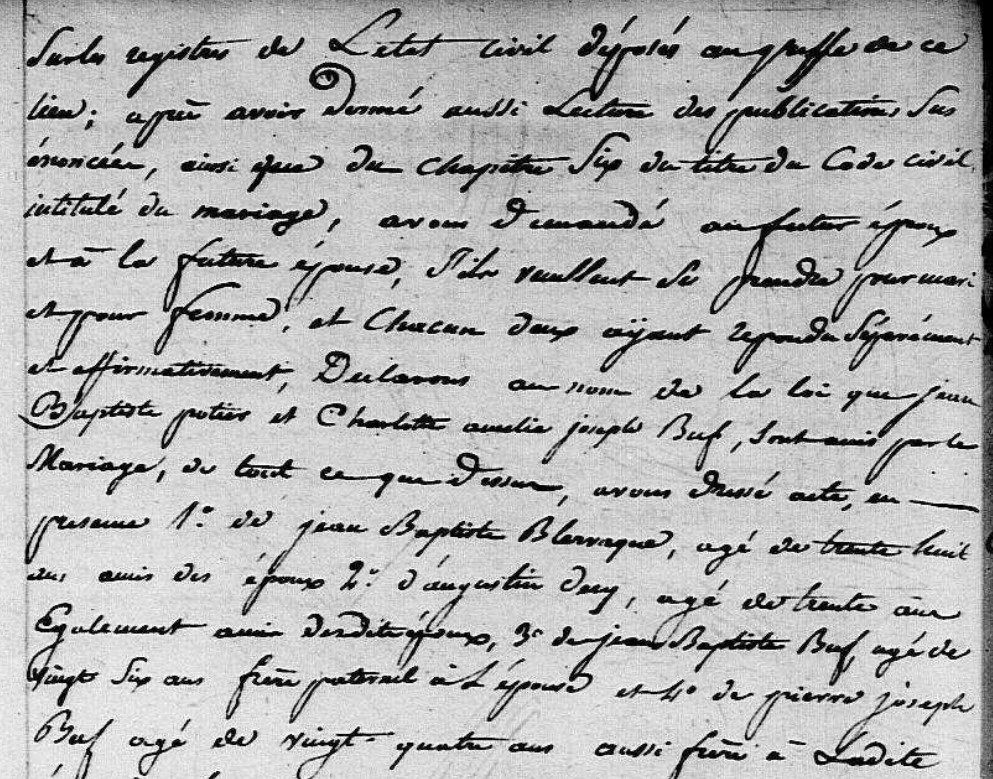 Sur les registres de L'etat civil déposés au greffe de ce
lieu; après avoir donné aussi Lecture des publications Sus
énoncées, ainsi que du Chapitre Six du titre du Code civil
intitulé du mariage, avons Demandé au futur époux
et à la future épouse, S'ils veullent Se prendre pour mari
et pour femme, et Chacun deux aÿant repondu Séparément
et affirmativement, Declarons au nom de la loi que jean
Baptiste potier et Charlotte amelie joseph Buf, Sont unis par le
Mariage, de tout ce que Dessus, avons dressé acte, en
presence 1.º de jean Baptiste Blervaque, agé de trente huit
ans amis des époux 2.º d'augustin, agé de trente ans
Egalement amis desdits époux, 3º de jean Baptiste Buf, agé de
Vingt Six ans frère paternel à L'épouse et 4º de pierre joseph
Buf agé de vingt quatre ans aussi frère à Ladite